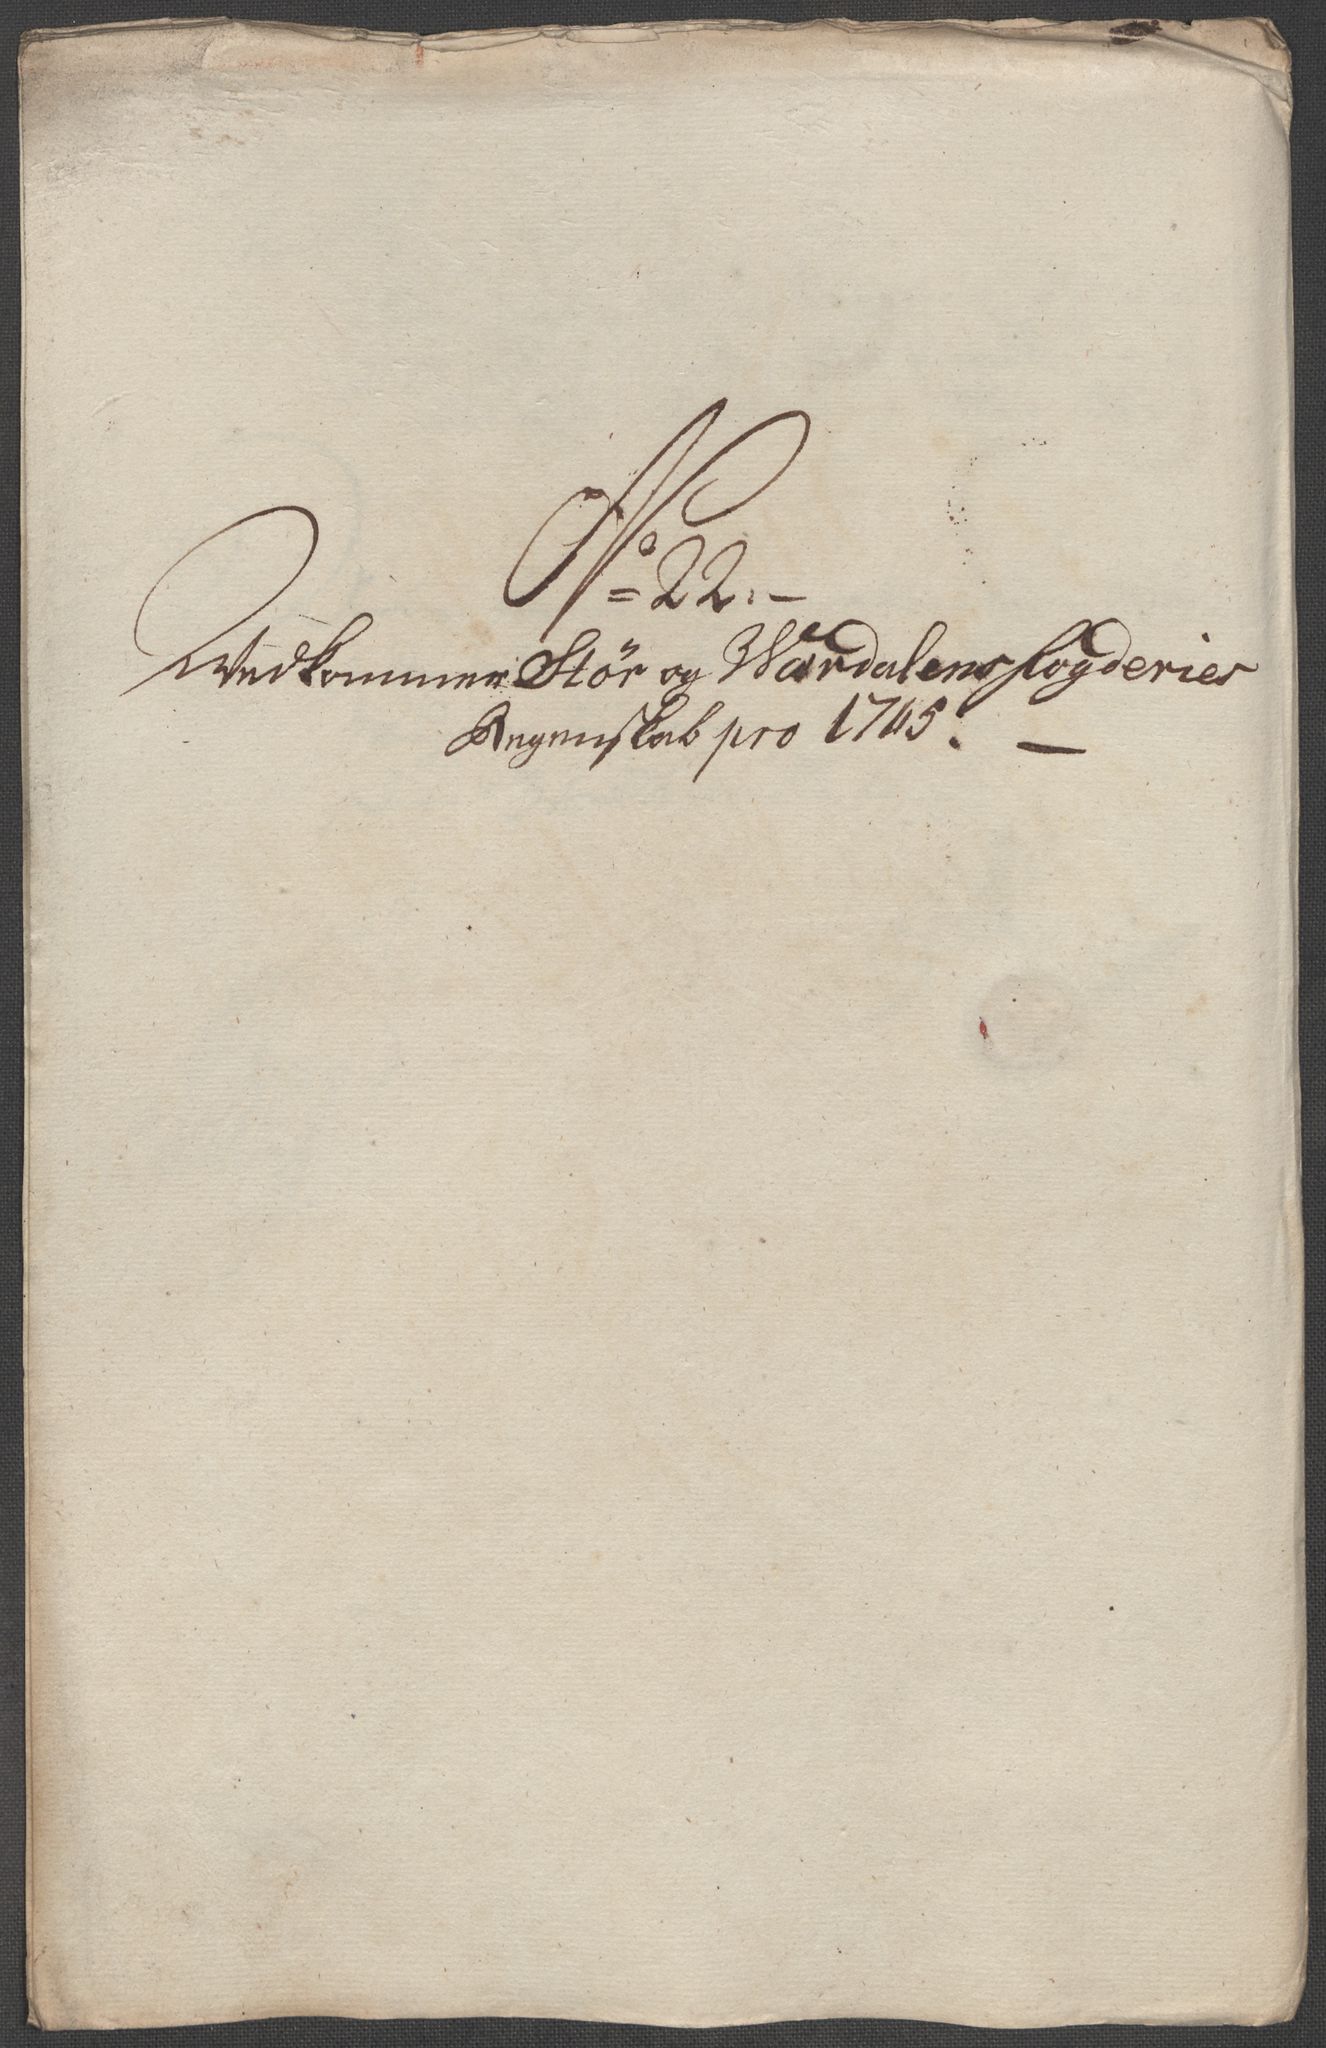 No = 22. –
Vedkommer Stör og Wærdalens fogderies
Regenskab pro 1715. –